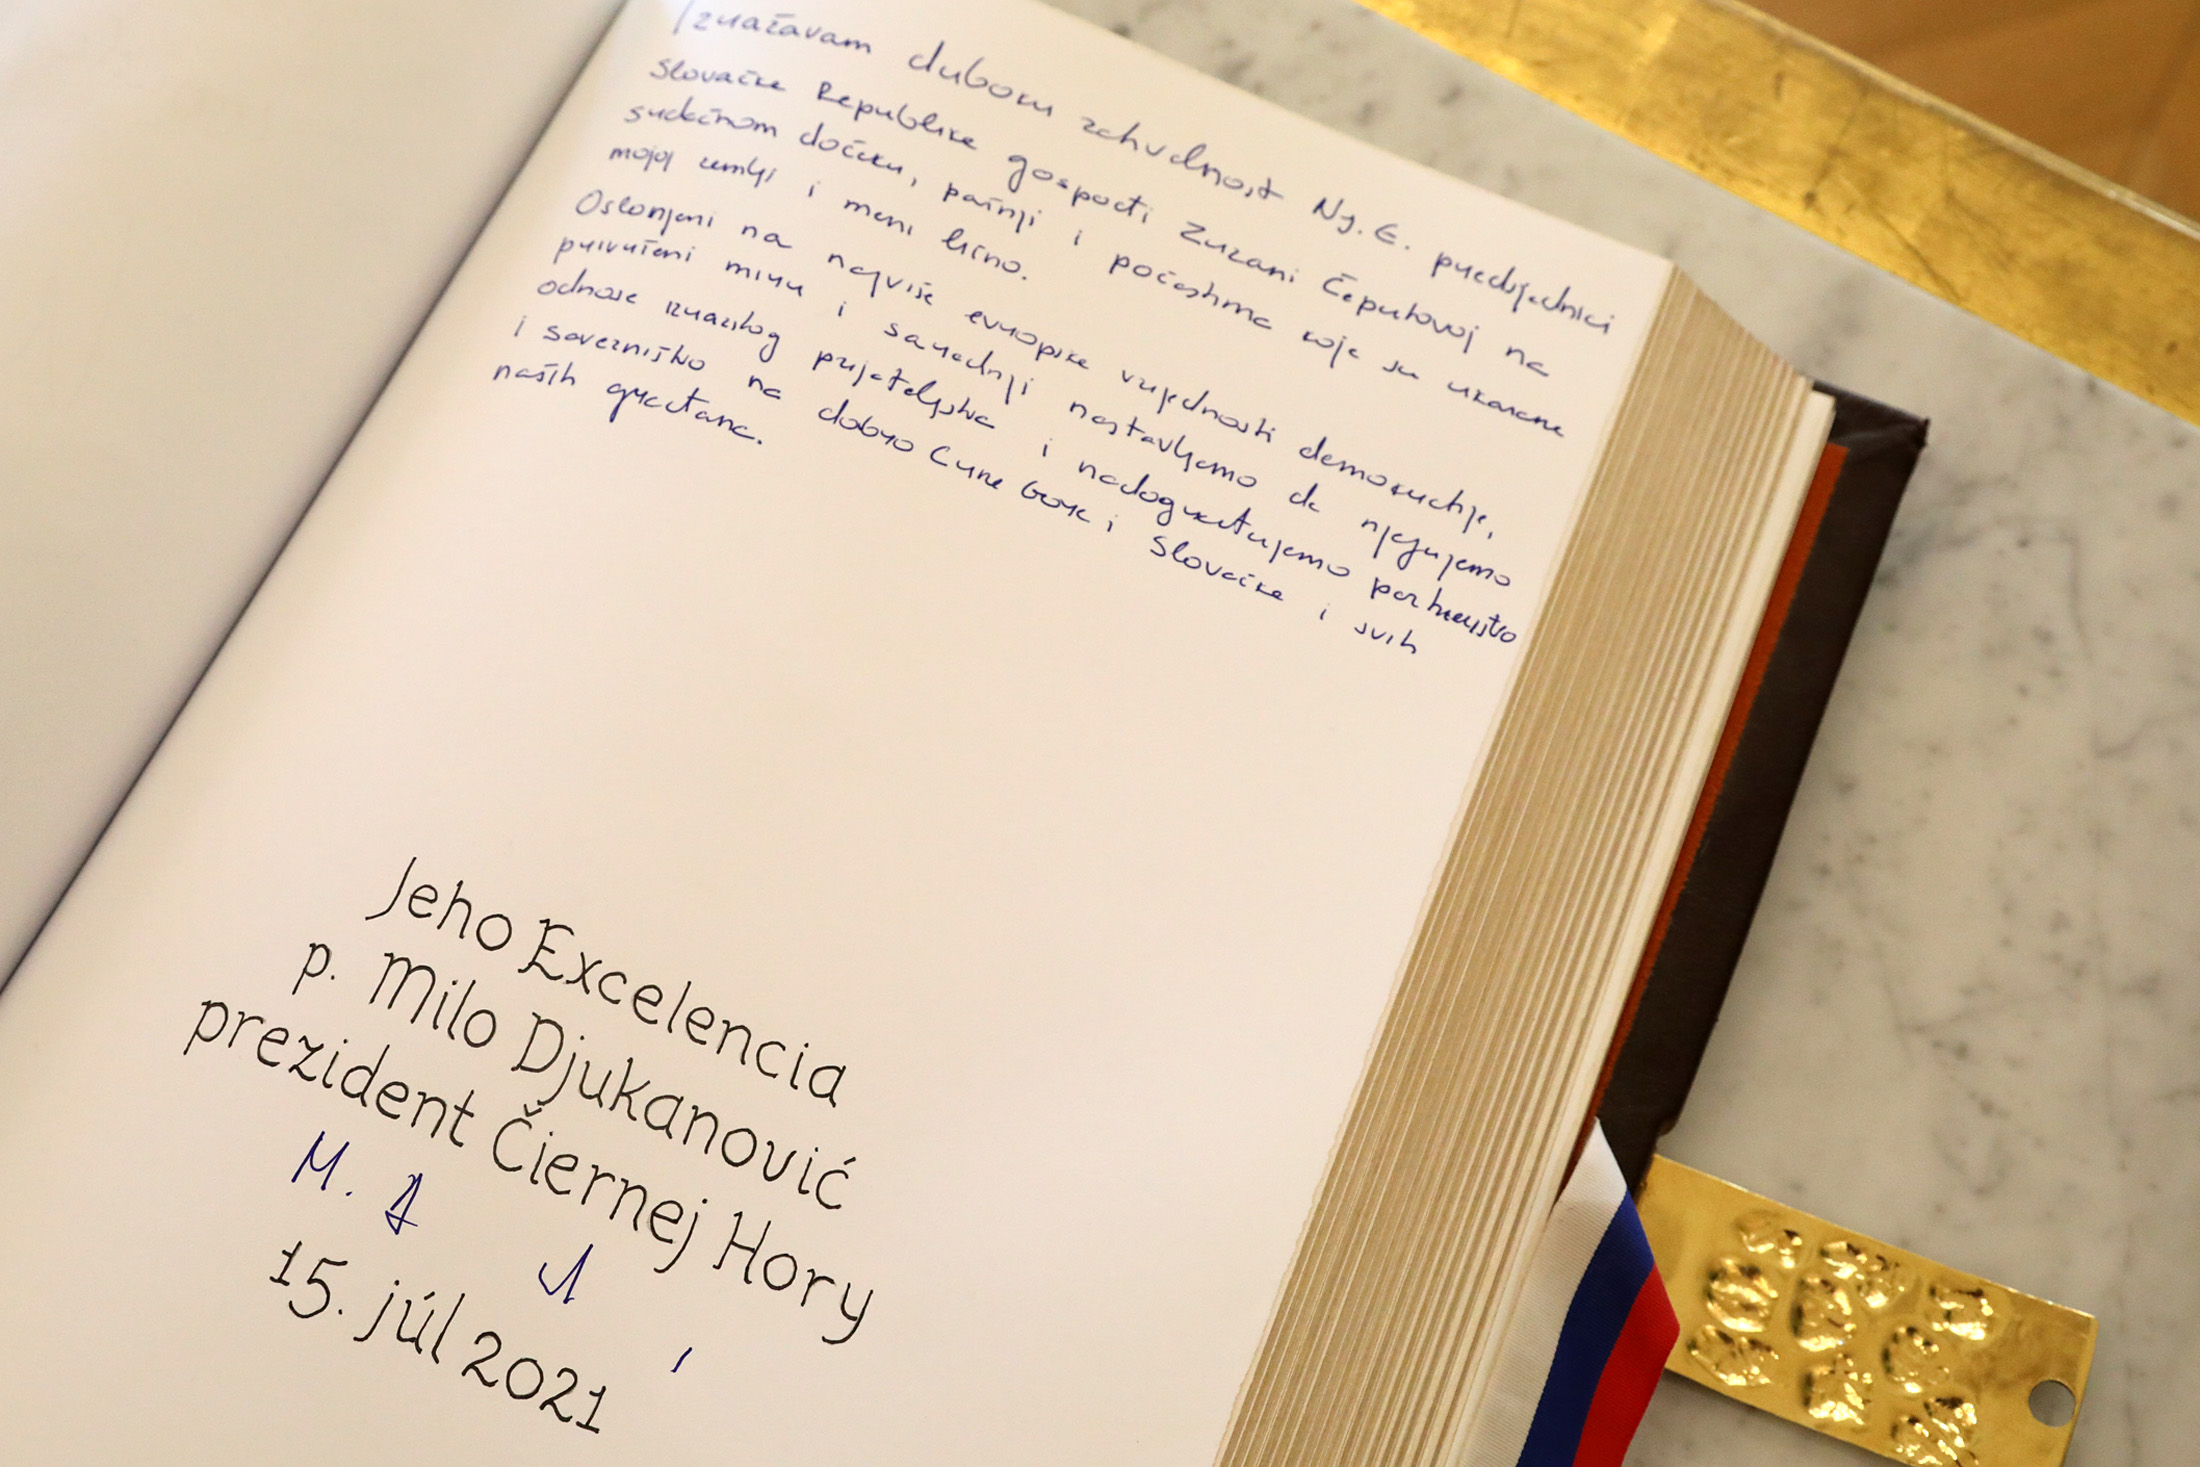 Izražavam duboku zahvalnost Nj. E. predsjednici
Slovačke Republike gospođi Zuzani Čaputovoj na
srdačnom dočeku, pažnji i počastima koje su ukazane
mojoj zemlji i meni lično.
Oslonjeni na najviše evropske vrijednosti demokratije,
privrženi miru i saradnji nastavljamo da njegujemo
odnose izrazitog prijateljstva i nadograđujemo partnerstvo
i savezništvo na dobro Crne Gore i Slovačke i svih
naših građana.
Jeho Excelencia
p. Milo Djukanović
prezident Čiernej Hory
M. Đ
15. júl 2021